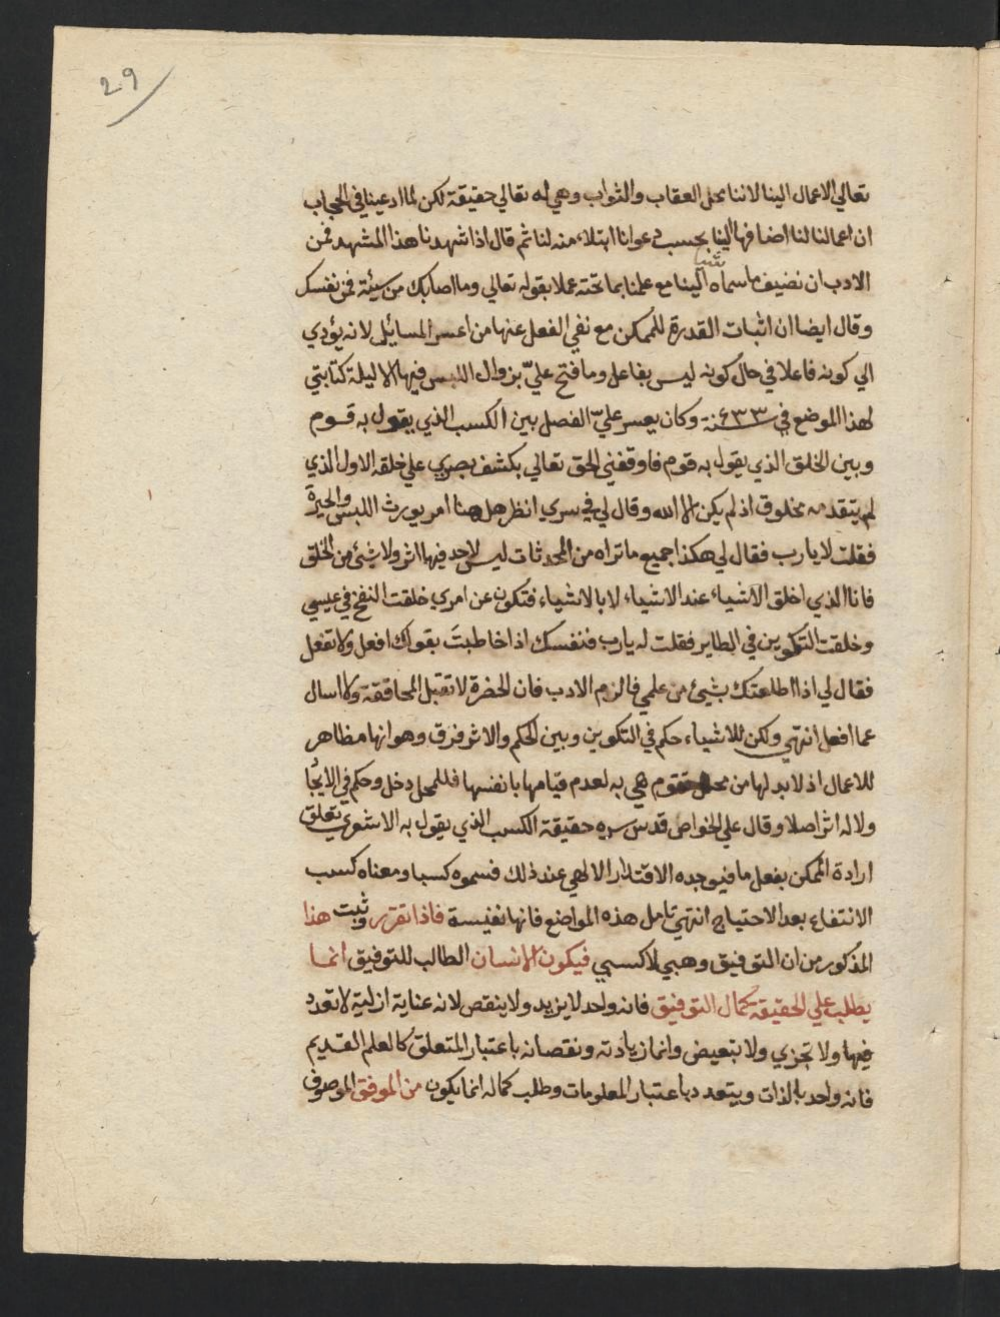 29
تعالي الاعمال الينا لاننا محل العقاب والثواب وهي له تعالي حقيقة لكن لما ادعينا في الحجاب
ان اعمالنا لنا اضافها الينا بحسب دعوانا ابتلاء منه لنا ثم قال اذا شهدنا هذا المشهد فمن
الادب ان نضيف ما سماه الينا مع علمنا بما تحته عملا بقوله تعالي وما اصابك من سيئة فمن نفسك
وقال ايضا ان اثبات القدرة للممكن مع نفي الفعل عنها من اعسر المسائل لانه يؤدي
الي كونه فاعلا في حال كونه ليس بفاعل وما فتح عليّ بزوال اللبس فيها الا ليلة كتابتي
لهذا الموضع في سنة ٦٣٣ وكان يعسر عليّ الفصل بين الكسب الذي يقول به قوم
وبين الخلق الذي يقول به قوم فاوقفني الحق تعالي بكشف بصري علي خلقه الاول الذي
لم يتقدمه مخلوق اذ لم يكن الا الله وقال لي في سري انظر هل هنا امر يورث اللبس والحيرة
فقلت لا يا رب فقال لي هكذا جميع ما تراه من المحدثات ليس لاحد فيها اثر ولا شيئ من الخلق
فانا الذي اخلق الاشياء عند الاشياء لا بالاشياء فتكون عن امري خلقت النفخ في عيسي
وخلقت التكوين في الطاير فقلت له يا رب فنفسك اذا خاطبتَ بقولك افعل ولا تفعل
فقال لي اذا اطلعتك بشيئ من علمي فالزم الادب فان الحضرة لا تقبل المحاققة ولا اسال
عما افعل انتهي ولكن للاشياء حكم في التكوين وبين الحكم والاثر فرق وهو انها مظاهر
للاعمال اذ لا بد لها من محل تقوم هي به لعدم قيامها بانفسها فللمحل دخل وحكم في الايجا
ولا له اثر اصلا وقال علي الخواص قدس سره حقيقة الكسب الذي يقول به الاشعري تعلق
ارادة الممكن بفعل ما فيوجده الاقتدار الالهي عند ذلك فسموه كسبا ومعناه كسب
الانتفاع بعد الاحتياج انتهي تامل هذه المواضع فانها نفيسة فاذا تقرر وثبت هذا
المذكور من ان التوفيق وهبي لا كسبي فيكون الانسان الطالب للتوفيق انما
يطلب علي الحقيقة كمال التوفيق فانه واحد لا يزيد ولا ينقص لانه عناية ازلية لا تعدد
فيها ولا تجزي ولا تبعيض وانما زيادته ونقصانه باعتبار المتعلق كالعلم القديم
فانه واحد بالذات ويتعدد باعتبار المعلومات وطلب كماله انما يكون من الموفق الموصوف